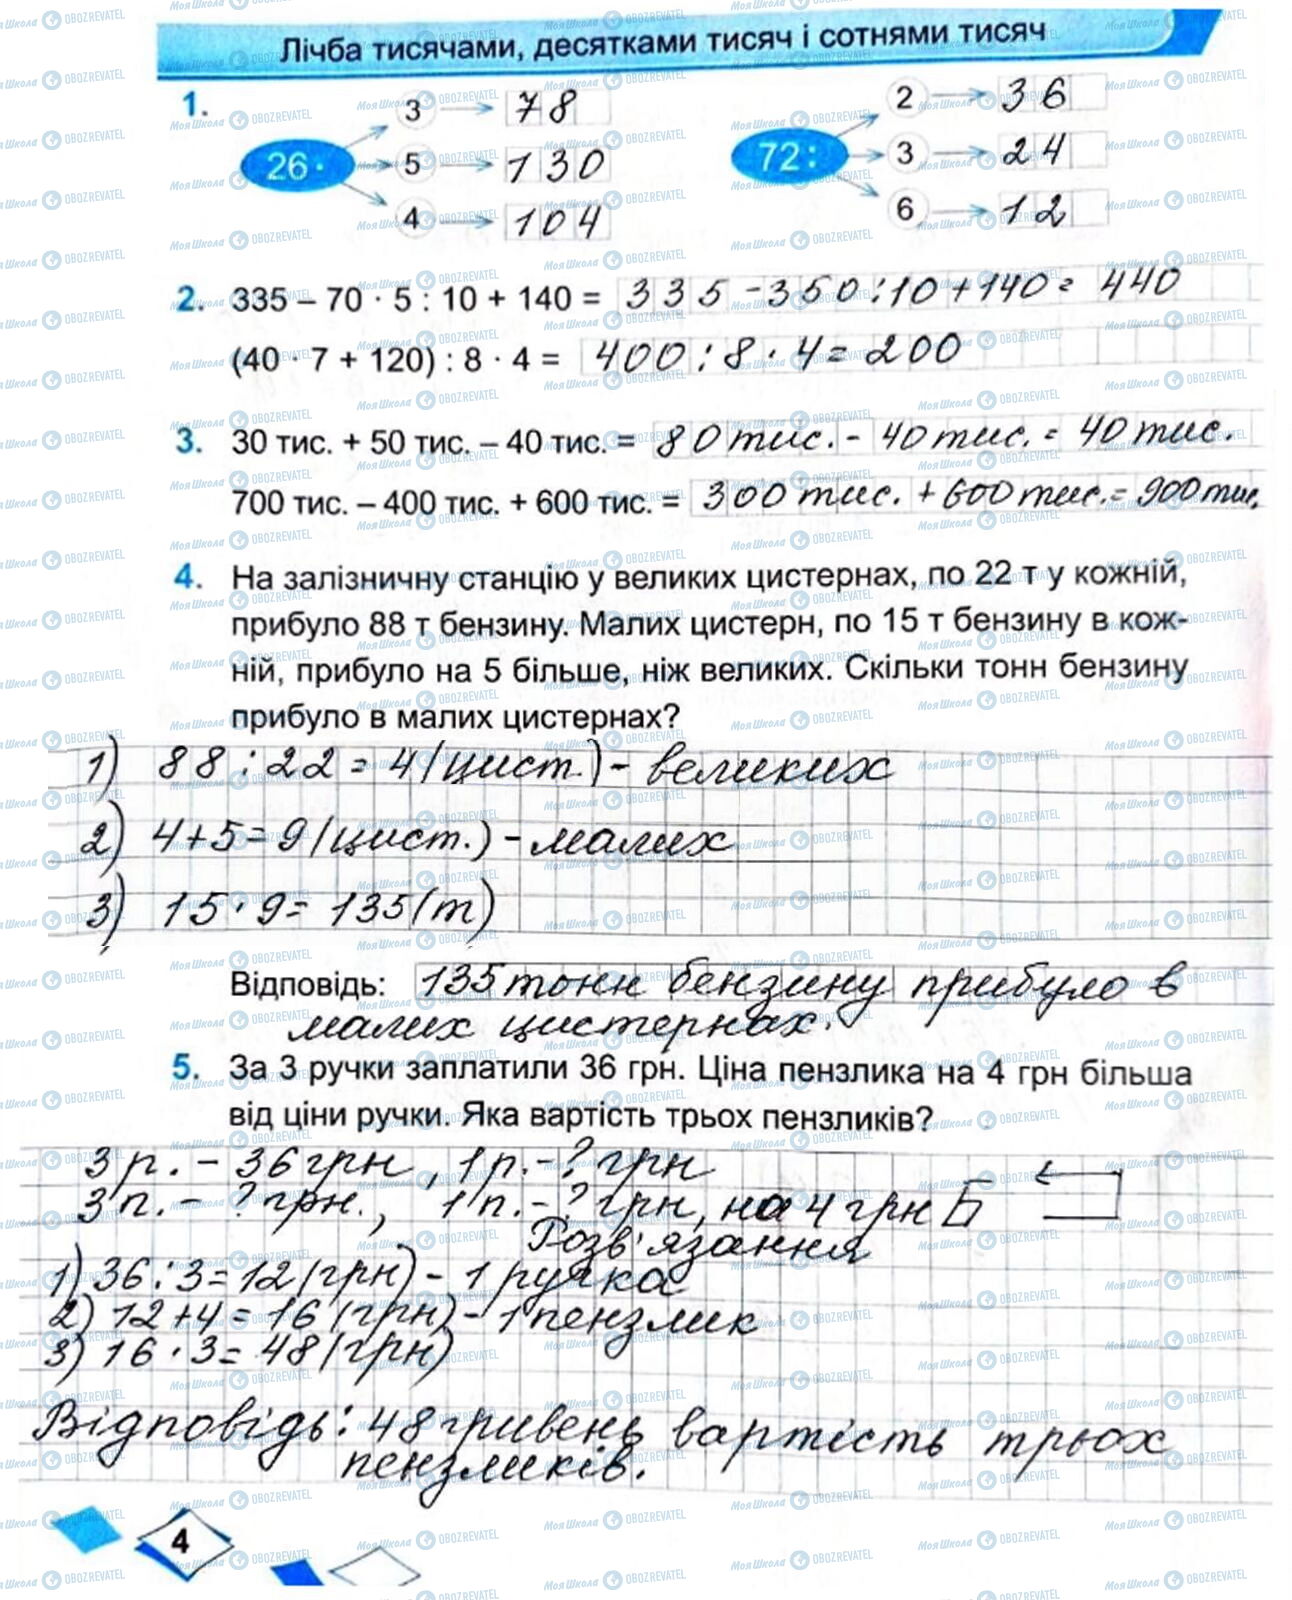 Лічба тисячами, десятками тисяч і сотнями тисяч
1.
26 ·
3 → 78
5 → 130
4 → 104
72 :
2 → 36
3 → 24
6 → 12
2. 335 – 70 · 5 : 10 + 140 = 335 - 350 : 10 + 140 = 440
(40 · 7 + 120) : 8 · 4 = 400 : 8 · 4 = 200
3. 30 тис. + 50 тис. – 40 тис. = 80 тис. - 40 тис. = 40 тис.
700 тис. – 400 тис. + 600 тис. = 300 тис. + 600 тис. = 900 тис.
4. На залізничну станцію у великих цистернах, по 22 т у кожній,
прибуло 88 т бензину. Малих цистерн, по 15 т бензину в кож-
ній, прибуло на 5 більше, ніж великих. Скільки тонн бензину
прибуло в малих цистернах?
1) 88 : 22 = 4 (цист.) - великих
2) 4 + 5 = 9 (цист.) - малих
3) 15 · 9 = 135 (т)
Відповідь: 135 тонн бензину прибуло в
малих цистернах.
5. За 3 ручки заплатили 36 грн. Ціна пензлика на 4 грн більша
від ціни ручки. Яка вартість трьох пензликів?
3 р. - 36 грн, 1 р. - ? грн
3 п. - ? грн., 1 п. - ? грн, на 4 грн Б
Розв'язання
1) 36 : 3 = 12 (грн) - 1 ручка
2) 12 + 4 = 16 (грн) - 1 пензлик
3) 16 · 3 = 48 (грн)
Відповідь: 48 гривень вартість трьох
пензликів.
4
Моя Школа OBOZREVATEL